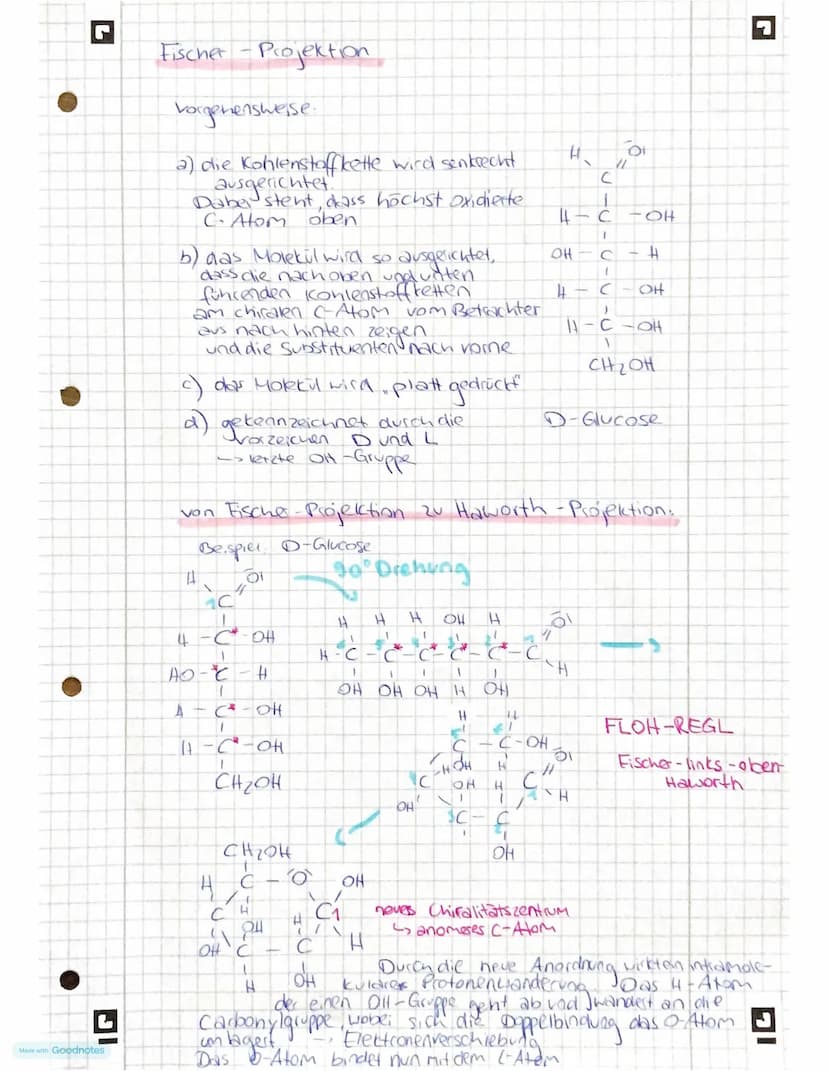 Fischer - Projektion
Vorgehensweise.
a) die Kohlenstoffkette wird senkrecht
ausgerichtet.
Dabei steht, dass höchst oxidierte
C-Atom oben
b) das Molekül wird so ausgerichtet,
dass die nach oben und unten
führenden Kohlenstoffketten
am chiralen C-Atom vom Betrachter
aus nach hinten zeigen
und die Substituenten nach vorne
c) das Molekül wird "platt gedrückt"
d) gekennzeichnet durch die
Vorzeichen D und L
-> letzte OH-Gruppe
H O
C
H - C - OH
OH - C - H
H - C - OH
H - C - OH
CH2OH
D-Glucose
von Fischer-Projektion zu Haworth-Projektion:
Beispiel D-Glucose
90° Drehung
H O
1C
H - C* - OH
HO - *C - H
H - C* - OH
H - C* - OH
CH2OH
H H H OH H O
H - C - C* - C* - C* - C* - C
H
OH OH OH H OH
FLOH-REGL
Fischer-links-oben
Haworth
H H
C - C - OH
O
H OH H
C OH H C
OH H
C - C
OH
CH2OH
H C - O OH
H
C OH H C1
OH C - C H
H OH
neues Chiralitätszentrum
↳ anomeres C-Atom
Durch die neue Anordnung wirkt ein intramole-
kulares Protonenwanderung. Das H-Atom
der einen OH-Gruppe geht ab und wandert an die
Carbonylgruppe, wobei sich die Doppelbindung das O-Atom
umlagert -> Elektronenverschiebung
Das O-Atom bindet nun mit dem C-Atom
Made with Goodnotes